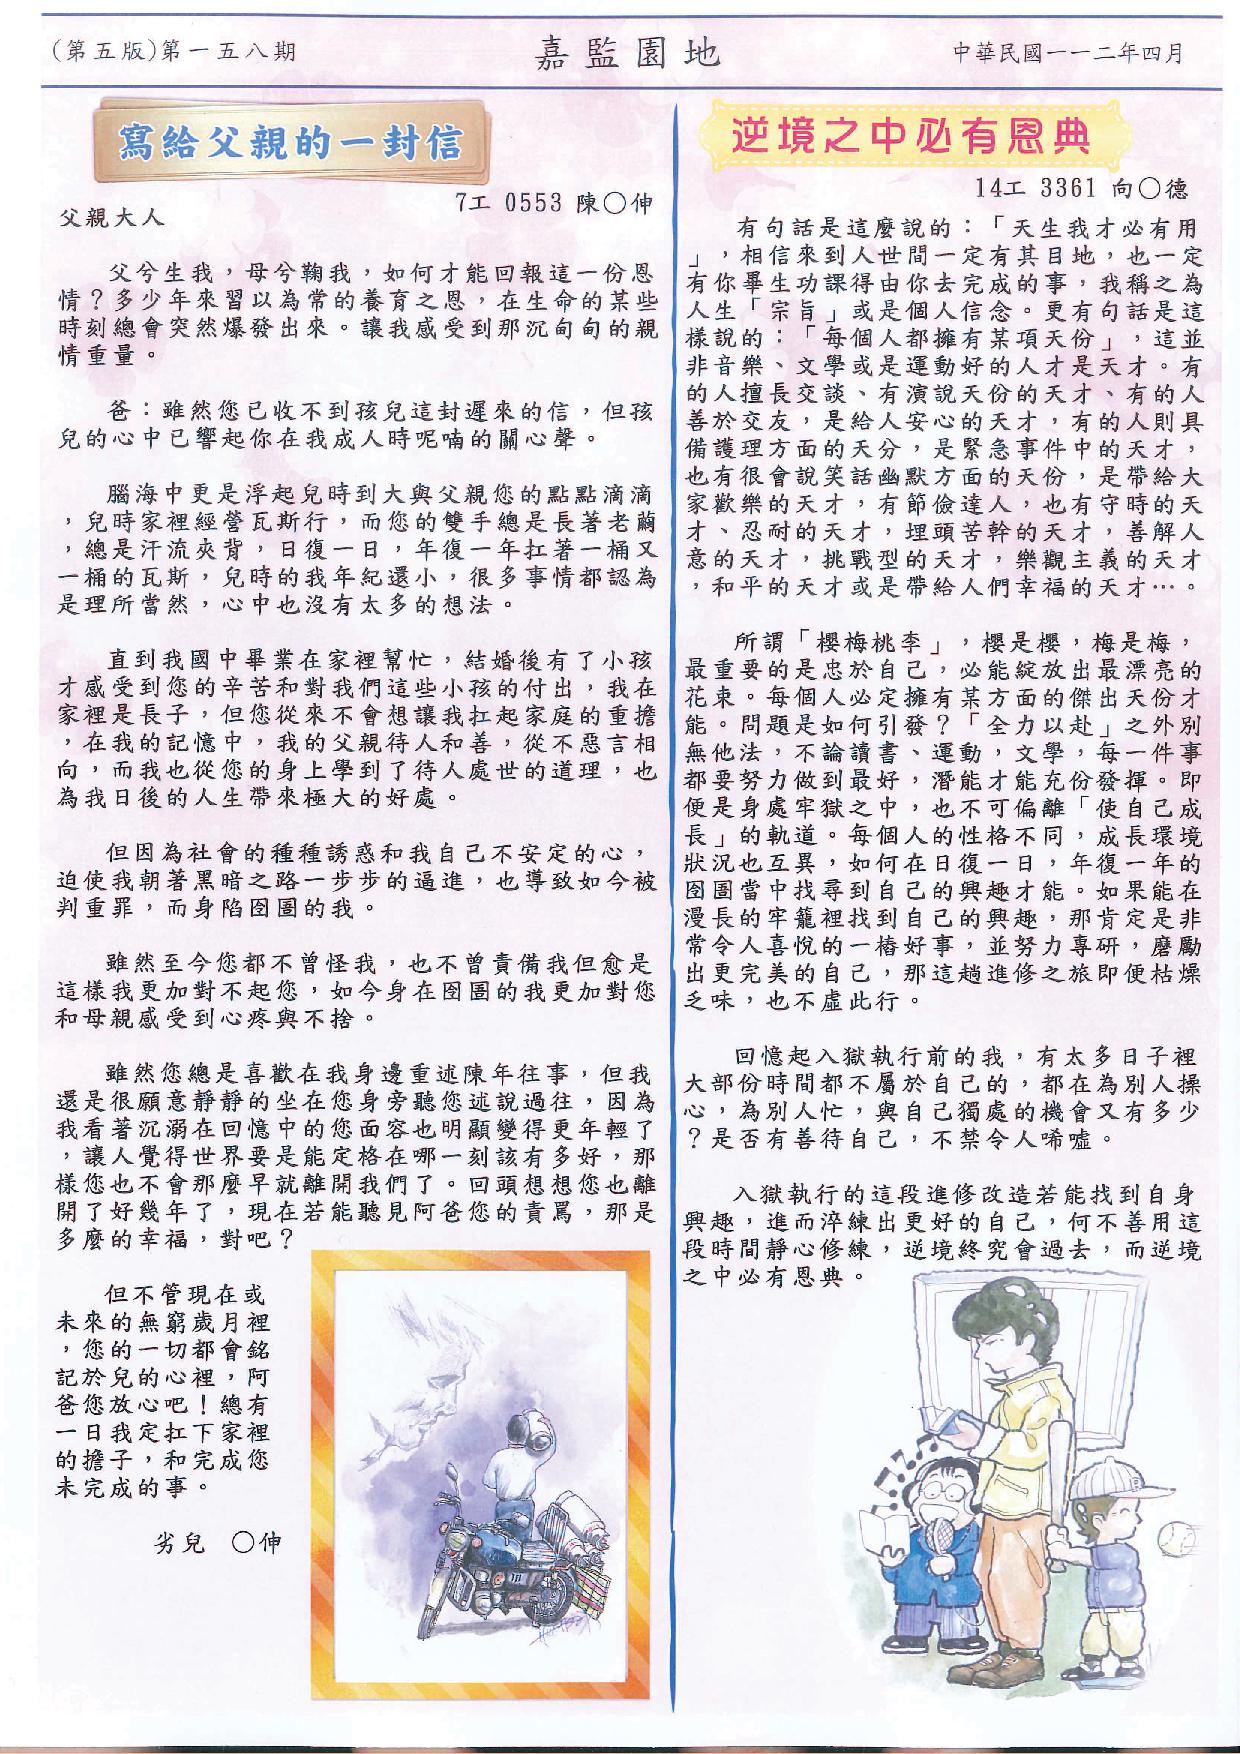 (第五版)第一五八期
嘉監園地
中華民國一一二年四月
寫給父親的一封信
7工 0553 陳○伸
父親大人
父兮生我，母兮鞠我，如何才能回報這一份恩
情？多少年來習以為常的養育之恩，在生命的某些
時刻總會突然爆發出來。讓我感受到那沉甸甸的親
情重量。
爸：雖然您已收不到孩兒這封遲來的信，但孩
兒的心中已響起你在我成人時呢喃的關心聲。
腦海中更是浮起兒時到大與父親您的點點滴滴
，兒時家裡經營瓦斯行，而您的雙手總是長著老繭
，總是汗流夾背，日復一日，年復一年扛著一桶又
一桶的瓦斯，兒時的我年紀還小，很多事情都認為
是理所當然，心中也沒有太多的想法。
直到我國中畢業在家裡幫忙，結婚後有了小孩
才感受到您的辛苦和對我們這些小孩的付出，我在
家裡是長子，但您從來不會想讓我扛起家庭的重擔
，在我的記憶中，我的父親待人和善，從不惡言相
向，而我也從您的身上學到了待人處世的道理，也
為我日後的人生帶來極大的好處。
但因為社會的種種誘惑和我自己不安定的心，
迫使我朝著黑暗之路一步步的逼進，也導致如今被
判重罪，而身陷囹圄的我。
雖然至今您都不曾怪我，也不曾責備我但愈是
這樣我更加對不起您，如今身在囹圄的我更加對您
和母親感受到心疼與不捨。
雖然您總是喜歡在我身邊重述陳年往事，但我
還是很願意靜靜的坐在您身旁聽您述說過往，因為
我看著沉溺在回憶中的您面容也明顯變得更年輕了
，讓人覺得世界要是能定格在哪一刻該有多好，那
樣您也不會那麼早就離開我們了。回頭想想您也離
開了好幾年了，現在若能聽見阿爸您的責罵，那是
多麼的幸福，對吧？
但不管現在或
未來的無窮歲月裡
，您的一切都會銘
記於兒的心裡，阿
爸您放心吧！總有
一日我定扛下家裡
的擔子，和完成您
未完成的事。
劣兒　○伸
逆境之中必有恩典
14工 3361 向○德
有句話是這麼說的：「天生我才必有用
」，相信來到人世間一定有其目地，也一定
有你畢生功課得由你去完成的事，我稱之為
人生「宗旨」或是個人信念。更有句話是這
樣說的：「每個人都擁有某項天份」，這並
非音樂、文學或是運動好的人才是天才。有
的人擅長交談、有演說天份的天才、有的人
善於交友，是給人安心的天才，有的人則具
備護理方面的天分，是緊急事件中的天才，
也有很會說笑話幽默方面的天份，是帶給大
家歡樂的天才，有節儉達人，也有守時的天
才、忍耐的天才，埋頭苦幹的天才，善解人
意的天才，挑戰型的天才，樂觀主義的天才
，和平的天才或是帶給人們幸福的天才…。
所謂「櫻梅桃李」，櫻是櫻，梅是梅，
最重要的是忠於自己，必能綻放出最漂亮的
花束。每個人必定擁有某方面的傑出天份才
能。問題是如何引發？「全力以赴」之外別
無他法，不論讀書、運動，文學，每一件事
都要努力做到最好，潛能才能充份發揮。即
便是身處牢獄之中，也不可偏離「使自己成
長」的軌道。每個人的性格不同，成長環境
狀況也互異，如何在日復一日，年復一年的
囹圄當中找尋到自己的興趣才能。如果能在
漫長的牢籠裡找到自己的興趣，那肯定是非
常令人喜悅的一樁好事，並努力專研，磨勵
出更完美的自己，那這趟進修之旅即便枯燥
乏味，也不虛此行。
回憶起入獄執行前的我，有太多日子裡
大部份時間都不屬於自己的，都在為別人操
心，為別人忙，與自己獨處的機會又有多少
？是否有善待自己，不禁令人唏噓。
入獄執行的這段進修改造若能找到自身
興趣，進而淬練出更好的自己，何不善用這
段時間靜心修練，逆境終究會過去，而逆境
之中必有恩典。